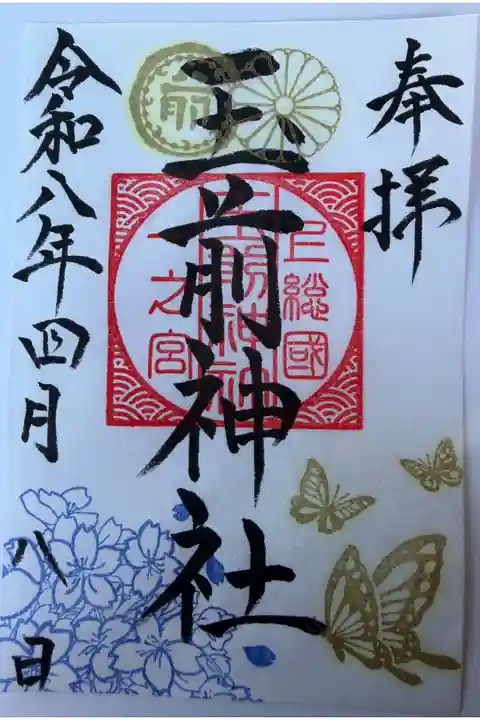 奉拝
上総國
玉前神社
一之宮
玉前神社
令和八年四月八日